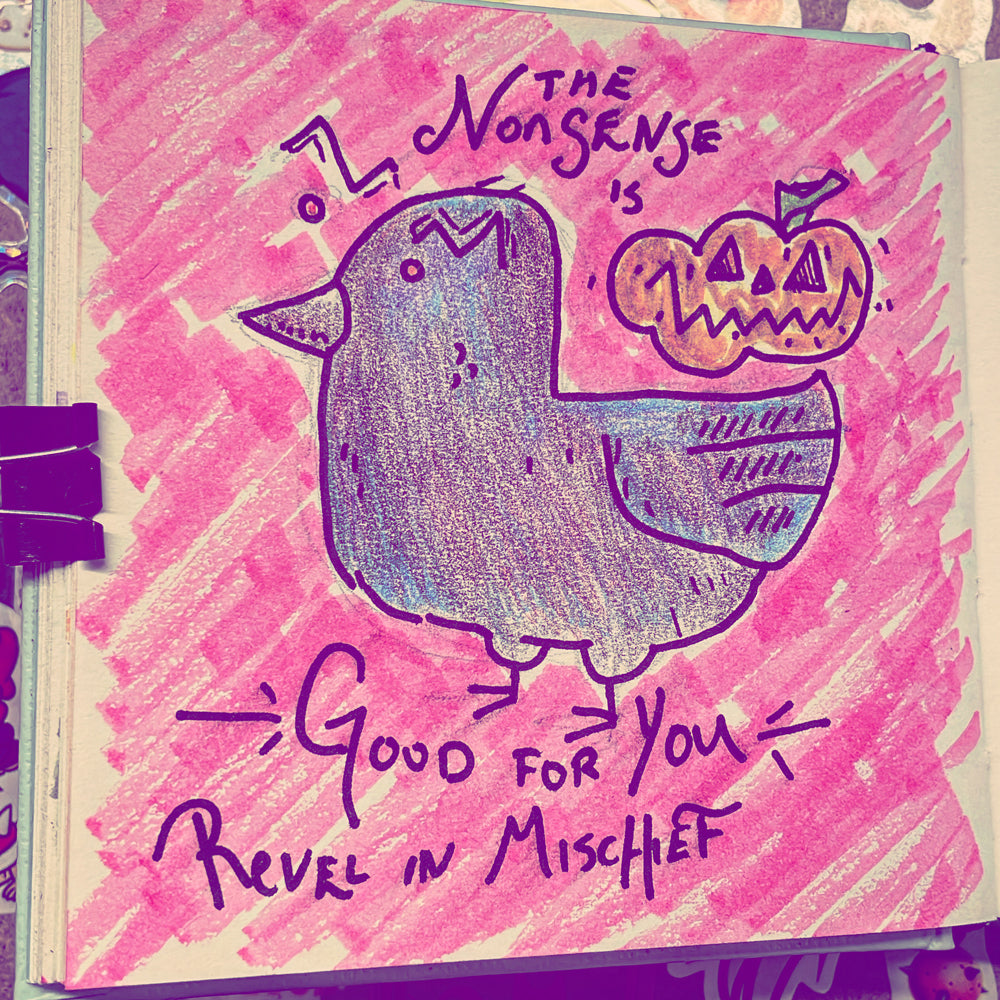 THE
NonSENSE
is
GOOD FOR YOU
REVEL IN MISCHIEF